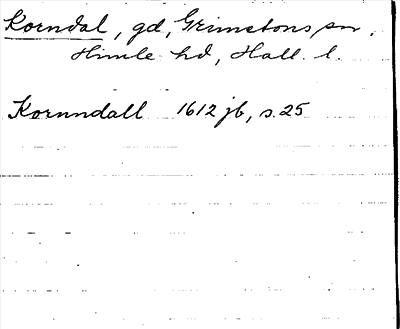 Korndal, gd, Grimetons sn,
Himle hd, Hall. l.
Kornndall 1612 jb, s. 25